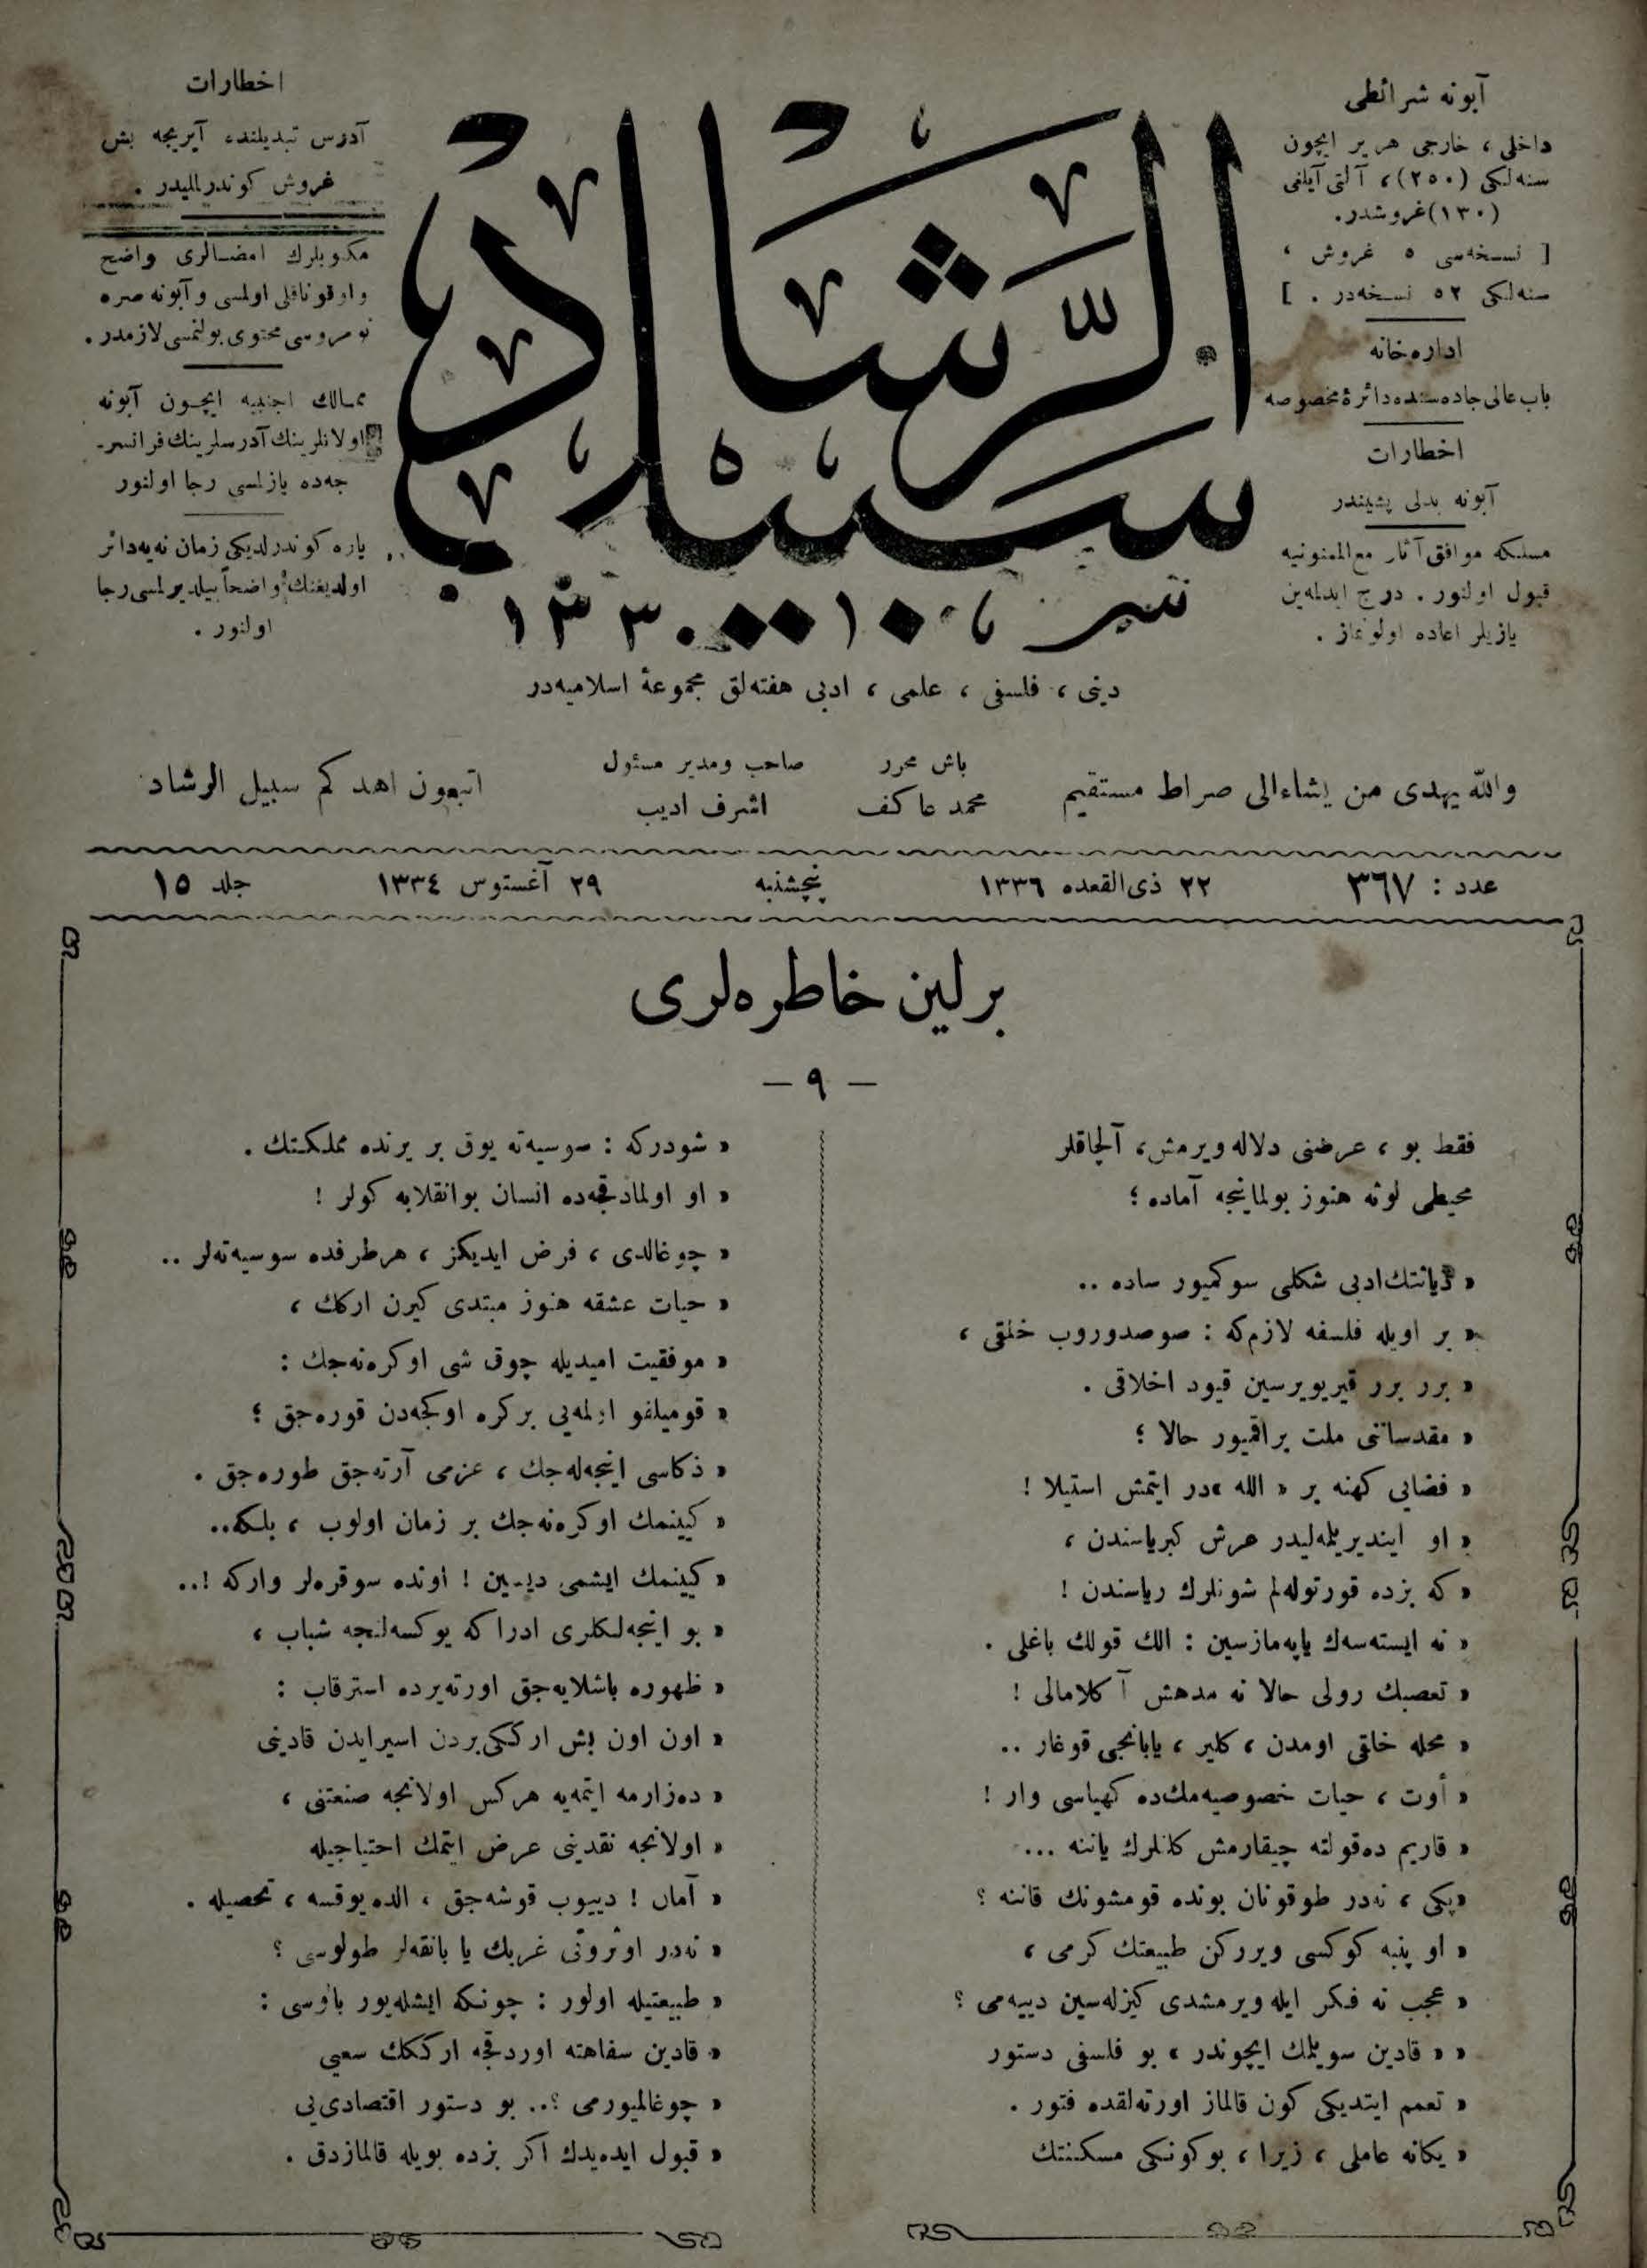 آبونه شرائطی
داخلی ، خارجی هر یر ایچون
سنه‌لکی (٢٥٠) ، آلتی آیلغی
(١٣٠) غروشدر.
[ نسخه‌سی ٥ غروش ،
سنه‌لکی ٥٢ نسخه‌در . ]
اداره‌خانه
باب عالی جاده‌سنده دائرهٔ مخصوصه
اخطارات
آبونه بدلی پشیندر
مسلکه موافق آثار مع‌الممنونیه
قبول اولنور . درج ایدلمه‌ین
یازیلر اعاده اولونماز .
سبیل الرشاد
١٣٣٠
اخطارات
آدرس تبدیلنده آیریجه بش
غروش کوندرلملیدر .
مکتوبلرك امضالری واضح
واوقوناقلی اولمسی وآبونه صره
نومروسی محتوی بولنمسی لازمدر .
ممالك اجنبیه ایچون آبونه
اولانلرینك آدرسلرینك فرانسز-
جه‌ده یازلمسی رجا اولنور
پاره کوندرلدیکی زمان نه‌یه‌دائر
اولدیغنك واضحاً بیلدیرلمسی رجا
اولنور .
دینی ، فلسفی ، علمی ، ادبی هفته‌لق مجموعهٔ اسلامیه‌در
والله یهدی من یشاء الی صراط مستقیم
باش محرر
محمد عاکف
صاحب ومدیر مسئول
اشرف ادیب
اتبعون اهدکم سبیل الرشاد
عدد : ٣٦٧ ٢٢ ذی‌القعده ١٣٣٦ پنجشنبه ٢٩ آغستوس ١٣٣٤ جلد ١٥
برلین خاطره‌لری
— ٩ —
فقط بو ، عرضنی دلاله ویرمش ، آلچاقلر
محیطی لوثه هنوز بولماینجه آماده ؛
« دیانتك ادبی شکلی سوکمیور ساده ..
« بر اویله فلسفه لازم‌که : صوصدوروب خلقی ،
« برر برر قیریویرسین قیود اخلاقی .
« مقدساتنی ملت براقمیور حالا ؛
« فضایی کهنه بر « الله »در ایتمش استیلا !
« او ایندیریلمه‌لیدر عرش کبریاسندن ،
« که بزده قورتوله‌لم شونلرك ریاسندن !
« نه ایسته‌سه‌ك یاپه‌مازسین : الك قولك باغلی .
« تعصبك رولی حالا نه مدهش آکلامالی !
« محله خلقی اومدن ، کلیر ، یابانجی قوغار ..
« أوت ، حیات خصوصیه‌مك‌ده کهیاسی وار !
« قاریم ده‌قولته چیقارمش کلنلرك یاننه ...
« پکی ، نه‌در طوقونان بونده قومشونك قاننه ؟
« او پنبه کوکسی ویررکن طبیعتك کرمی ،
« عجب نه فکر ایله ویرمشدی کیزله‌سین دییه‌می ؟
« « قادین سویلمك ایچوندر » بو فلسفی دستور
« تعمم ایتدیکی کون قالماز اورته‌لقده فتور .
« یکانه عاملی ، زیرا ، بوکونکی مسکنتك
« شودرکه : سوسیه‌ته یوق بر یرنده مملکتك .
« او اولمادقجه‌ده انسان بوانقلابه کولر !
« چوغالدی ، فرض ایدیکز ، هرطرفده سوسیه‌ته‌لر ..
« حیات عشقه هنوز مبتدی کیرن ارکك ،
« موفقیت امیدیله چوق شی اوکره‌نه‌جك :
« قومیلفو اولمه‌یی برکره اوکجه‌دن قوره‌جق ؛
« ذکاسی اینجه‌له‌جك ، عزمی آرته‌جق طوره‌جق .
« کیینمك اوکره‌نه‌جك بر زمان اولوب ، بلکه..
« کیینمك ایشمی دیسین ! اونده سوقره‌لر وارکه !..
« بو اینجه‌لکلری ادراکه یوکسه‌لنجه شباب ،
« ظهوره باشلایه‌جق اورته‌یرده استرقاب :
« اون اون بش ارککی بردن اسیرایدن قادینی
« ده‌زارمه ایتمه‌یه هرکس اولانجه صنعتنی ،
« اولانجه نقدینی عرض ایتمك احتیاجیله
« آمان ! دییوب قوشه‌جق ، الده یوقسه ، تحصیله .
« نه‌در اوثروتی غربك یا بانقه‌لر طولوسی ؟
« طبیعتیله اولور : چونکه ایشله‌یور
« قادین سفاهته اوردقجه ارککك سعیی
« چوغالمیورمی ؟.. بو دستور اقتصادی‌یی
« قبول ایده‌یدك اکر بزده بویله قالمازدق .